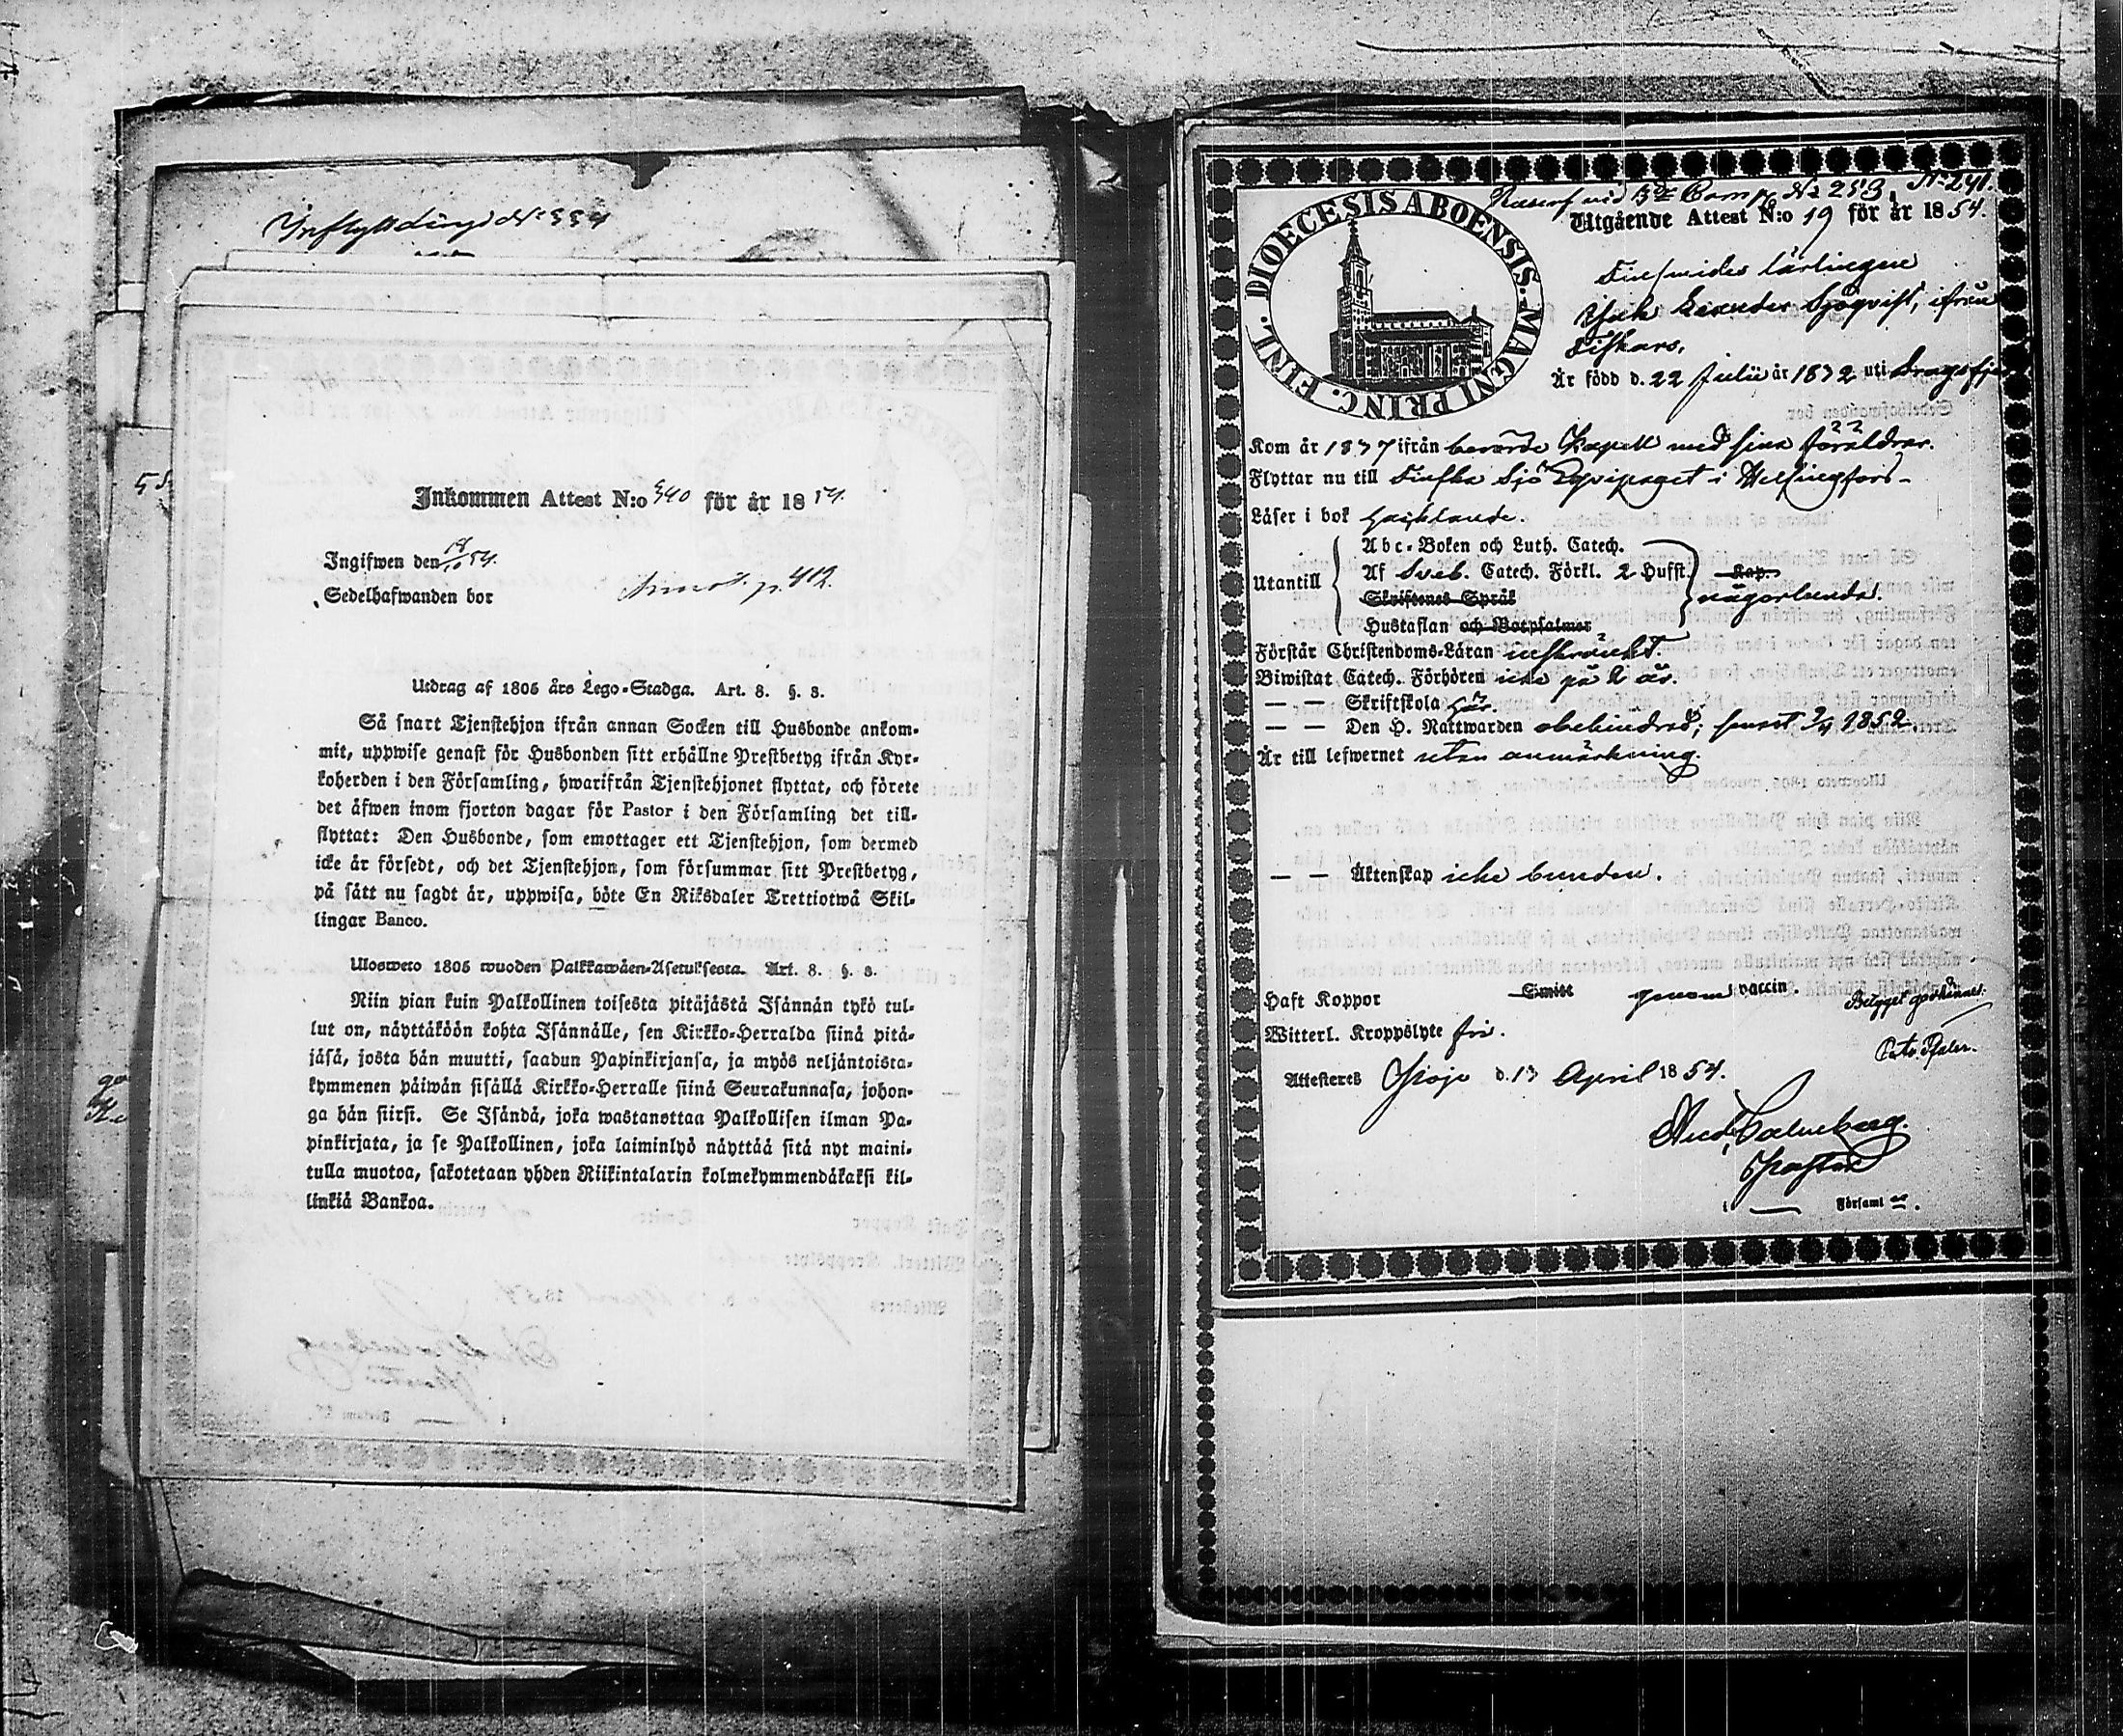 Inflyttning N:o 334
Inkommen Attest N:o 340 för år 1854.
Ingifwen den 18/10 54.
Sedelhafwanden bor
p. 412.
Utdrag af 1805 års Lego-Stadga. Art. 8. §. 3.
Så snart Tjenstehjon ifrån annan Socken till Husbonde ankom-
mit, uppwise genast för Husbonden sitt erhållne Prestbetyg ifrån Kyr-
koherden i den Församling, hwarifrån Tjenstehjonet flyttat, och förete
det äfwen inom fjorton dagar för Pastor i den Församling det till-
flyttat: Den Husbonde, som emottager ett Tjenstehjon, som dermed
icke är försedt, och det Tjenstehjon, som försummar sitt Prestbetyg,
på sätt nu sagdt är, uppwisa, böte En Riksdaler Trettiotwå Skil-
lingar Banco.
Ulosweto 1805 wuoden Palkkawäen-Asetuksesta. Art. 8. §. 3.
Niin pian kuin Palkollinen toisesta pitäjästä Isännän tykö tul-
lut on, näyttäköön kohta Isännälle, sen Kirkko-Herralda siinä pitä-
jäsä, josta hän muutti, saadun Papinkirjansa, ja myös neljäntoista-
kymmenen päiwän sisällä Kirkko-Herralle siinä Seurakunnasa, johon-
ga hän siirsi. Se Isändä, joka wastanottaa Palkollisen ilman Pa-
pinkirjata, ja se Palkollinen, joka laiminlyö näyttää sitä nyt maini-
tulla muotoa, sakotetaan yhden Riikintalarin kolmekymmendäkaksi kil-
linkiä Bankoa.
vid 3de Comp. N:o 253, N:o 241.
DIOECESIS ABOENSIS. MAGNI PRINC. FINL.
Utgående Attest N:o 19 för år 1854.
Finsmides lärlingen
Isak Leander Sjöqvist, ifrån
Fiskars.
Är född d. 22 Julii år 1832 uti Dragsfjerd
Kom år 1837 ifrån berörde Kapell med sina föräldrar.
Flyttar nu till Finska Sjö Eqvipaget i Helsingfors.
Läser i bok hackande.
Utantill
Abc-Boken och Luth. Catech.
Af Sveb. Catech. Förkl. 2 Hufst. Kap.
Skriftenes Språk
någorlunda.
Hustaflan och Botpsalmer
Förstår Christendoms-Läran inskränkt.
Biwistat Catech. Förhören icke på 2 år.
— — Skriftskola här.
— — Den H. Nattwarden obehindrad; senast 9/4 1852.
Är till lefwernet utan anmärkning.
— — Äktenskap icke bunden.
Haft Koppor Smitt genom vaccin.
Betyget godkännes.
Witterl. Kroppslyte fri.
Attesteras Pojo d. 13 April 1854.
Pastor
i — Församl